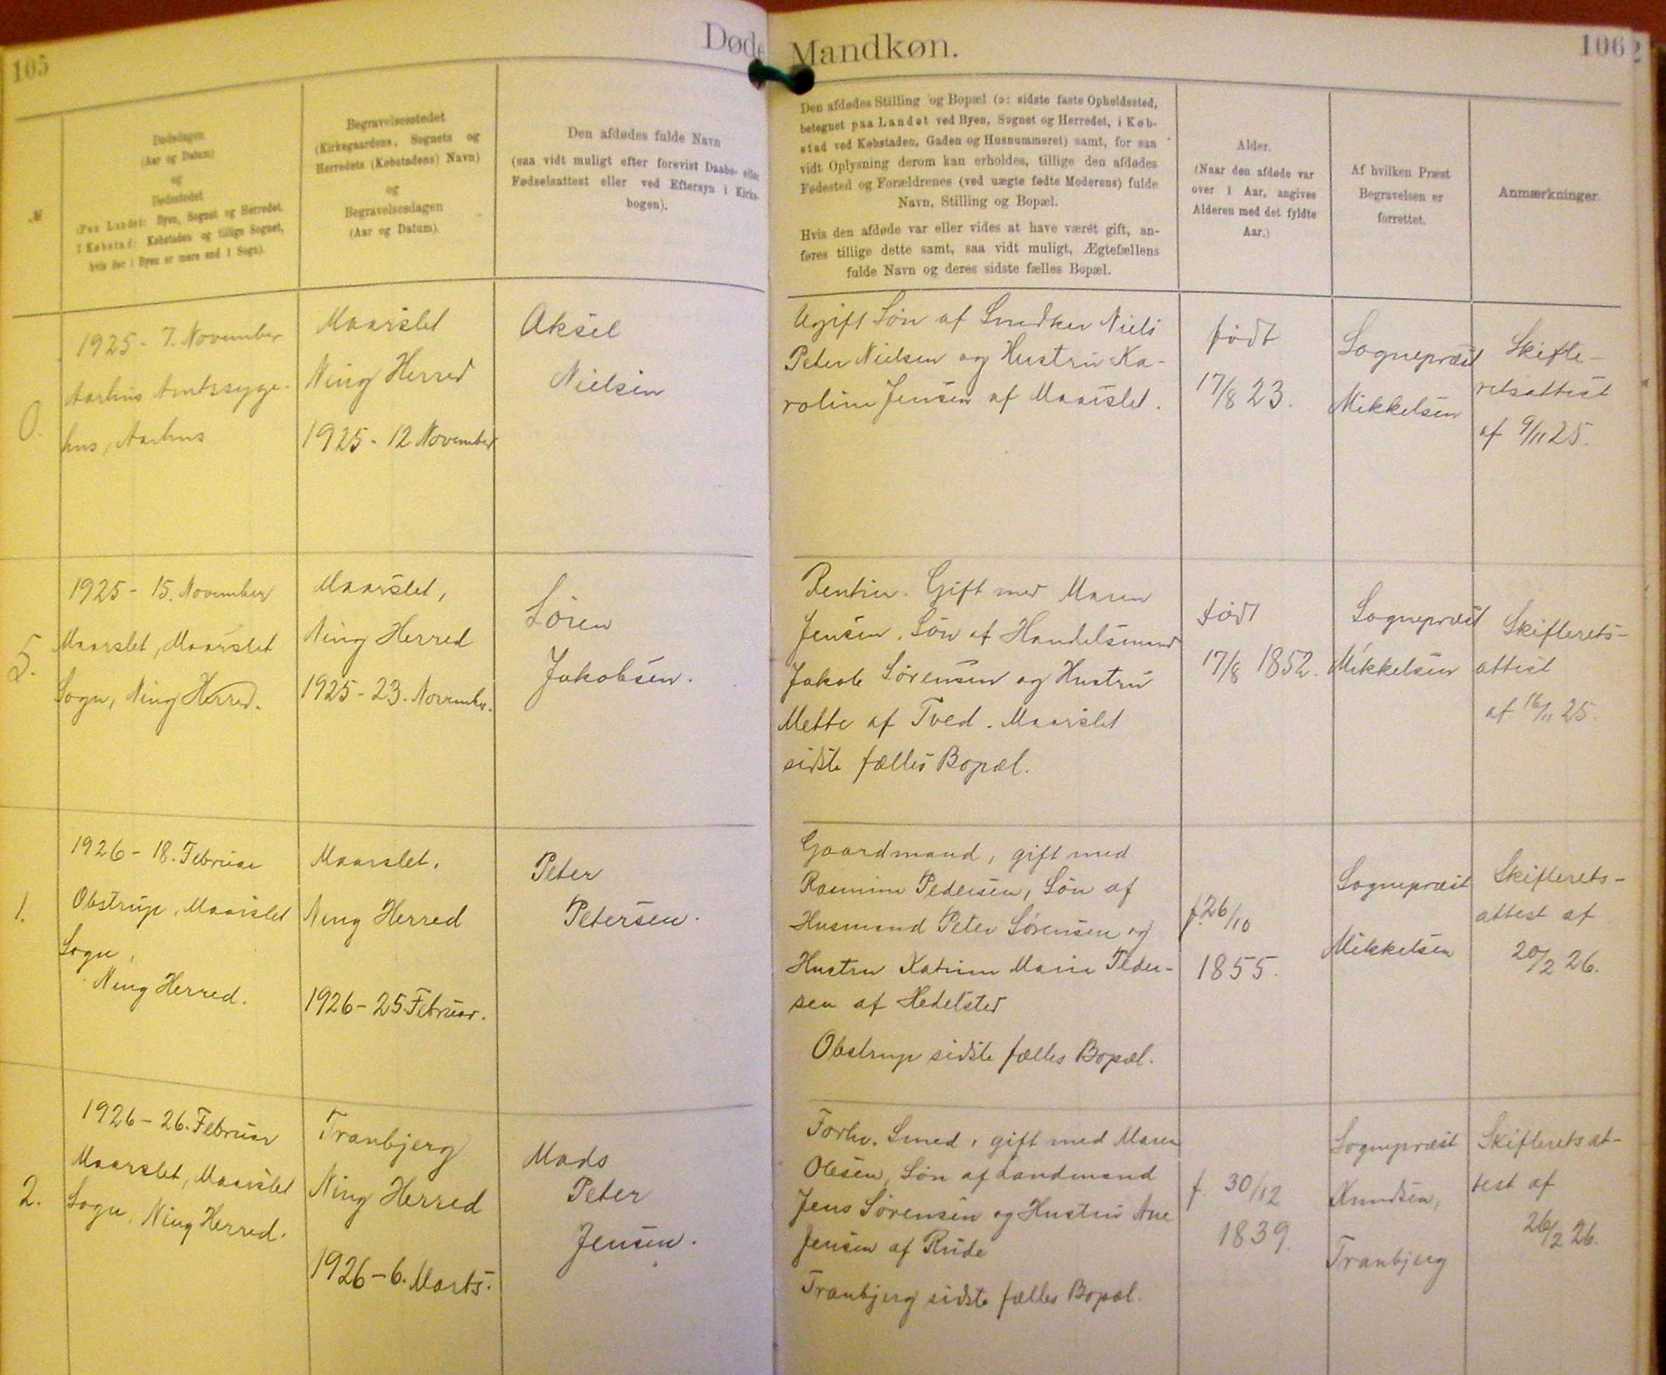 105
Døde
Mandkøn.
106
№
Dødsdagen
(Aar og Datum)
og
Dødsstedet
(Paa Landet: Byen, Sognet og Herredet.
I Købstad: Købstaden og tillige Sognet,
hvis der i Byen er mere end 1 Sogn).
Begravelsesstedet
(Kirkegaardens, Sognets og
Herredets (Købstadens) Navn)
og
Begravelsesdagen
(Aar og Datum).
Den afdødes fulde Navn
(saa vidt muligt efter forevist Daabs- eller
Fødselsattest eller ved Eftersyn i Kirke-
bogen).
Den afdødes Stilling og Bopæl (ɔ: sidste faste Opholdssted,
betegnet paa Landet ved Byen, Sognet og Herredet, i Køb-
stad ved Købstaden, Gaden og Husnummeret) samt, for saa
vidt Oplysning derom kan erholdes, tillige den afdødes
Fødested og Forældrenes (ved uægte fødte Moderens) fulde
Navn, Stilling og Bopæl.
Hvis den afdøde var eller vides at have været gift, an-
føres tillige dette samt, saa vidt muligt, Ægtefællens
fulde Navn og deres sidste fælles Bopæl.
Alder.
(Naar den afdøde var
over 1 Aar, angives
Alderen med det fyldte
Aar.)
Af hvilken Præst
Begravelsen er
forrettet.
Anmærkninger.
0.
1925 - 7. November
Aarhus Amtssyge-
hus, Aarhus
Maarslet
Ning Herred
1925 - 12 November
Aksel
Nielsen
Ugift Søn af Snedker Niels
Peter Nielsen og Hustru Ka-
roline Jensen af Maarslet.
født
17/8 23.
Sognepræst
Mikkelsen
Skifte-
retsattest
af 9/11 25.
5.
1925 - 15. November
Maarslet, Maarslet
Sogn, Ning Herred.
Maarslet,
Ning Herred
1925 - 23. November.
Søren
Jakobsen.
Rentier. Gift med Maren
Jensen. Søn af Handelsmand
Jakob Sørensen og Hustru
Mette af Tved. Maarslet
sidste fælles Bopæl.
født
17/8 1852.
Sognepræst
Mikkelsen
Skifterets-
attest
af 16/11 25.
1.
1926 - 18. Februar
Obstrup, Maarslet
Sogn,
Ning Herred.
Maarslet.
Ning Herred
1926 - 25 Februar.
Peter
Petersen.
Gaardmand, gift med
Rasmine Pedersen, Søn af
Husmand Peter Sørensen og
Hustru Katrine Marie Peder-
sen af Hedelsted
Obstrup sidste fælles Bopæl.
f. 26/10
1855.
Sognepræst
Mikkelsen
Skifterets-
attest af
20/2 26.
2.
1926 - 26. Februar
Maarslet, Maarslet
Sogn, Ning Herred.
Tranbjerg
Ning Herred
1926 - 6. Marts.
Mads
Peter
Jensen.
Forhv. Smed, gift med Maren
Olesen, Søn af Landmand
Jens Sørensen og Hustru Ane
Jensen af Rude
Tranbjerg sidste fælles Bopæl.
f. 30/12
1839.
Sognepræst
Knudsen,
Tranbjerg
Skifterets at-
test af
26/2 26.